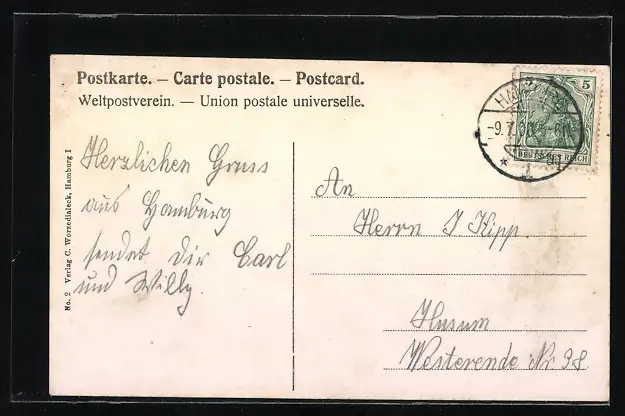 Postkarte. – Carte postale. – Postcard.
Weltpostverein. — Union postale universelle.
5
DEUTSCHES REICH
Herzlichen Gruss
aus Hamburg
sendet dir Carl
und Willy.
An
Herrn J Kipp.
Husum
Westerende Nr 38
No. 2 Verlag C. Worzedialeck, Hamburg I